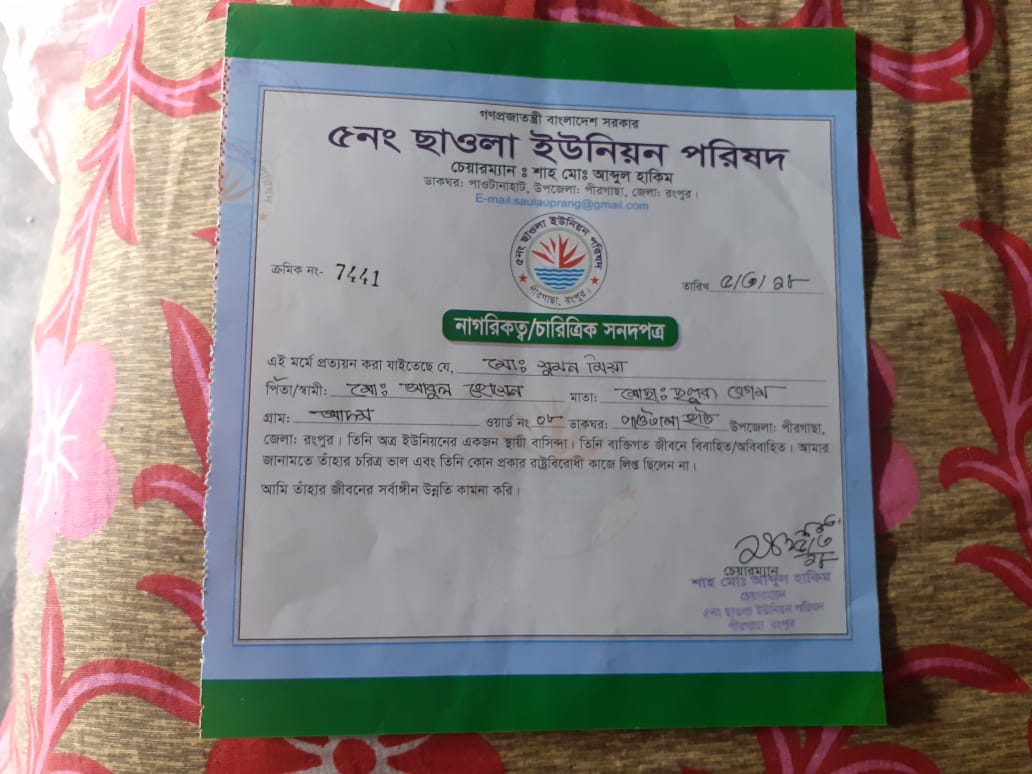 গণপ্রজাতন্ত্রী বাংলাদেশ সরকার
৫নং ছাওলা ইউনিয়ন পরিষদ
চেয়ারম্যান : শাহ মোঃ আব্দুল হাকিম
ডাকঘর: পাওটানাহাট, উপজেলা: পীরগাছা, জেলা: রংপুর।
E-mail:saulauprang@gmail.com
৫নং ছাওলা ইউনিয়ন পরিষদ
পীরগাছা, রংপুর।
ক্রমিক নং- 7441
তারিখ ৫/৩/১৮
নাগরিকত্ব/চারিত্রিক সনদপত্র
এই মর্মে প্রত্যয়ন করা যাইতেছে যে, মোঃ সুমন মিয়া
পিতা/স্বামী: মোঃ আবুল হোসেন মাতা: মোছাঃ বেগম
গ্রাম: আদম ওয়ার্ড নং ০৮ ডাকঘর: পাওটানা হাট উপজেলা: পীরগাছা,
জেলা: রংপুর। তিনি অত্র ইউনিয়নের একজন স্থায়ী বাসিন্দা। তিনি ব্যক্তিগত জীবনে বিবাহিত/অবিবাহিত। আমার
জানামতে তাঁহার চরিত্র ভাল এবং তিনি কোন প্রকার রাষ্ট্রবিরোধী কাজে লিপ্ত ছিলেন না।
আমি তাঁহার জীবনের সর্বাঙ্গীন উন্নতি কামনা করি।
চেয়ারম্যান
শাহ মোঃ আব্দুল হাকিম
চেয়ারম্যান
৫নং ছাওলা ইউনিয়ন পরিষদ
পীরগাছা রংপুর